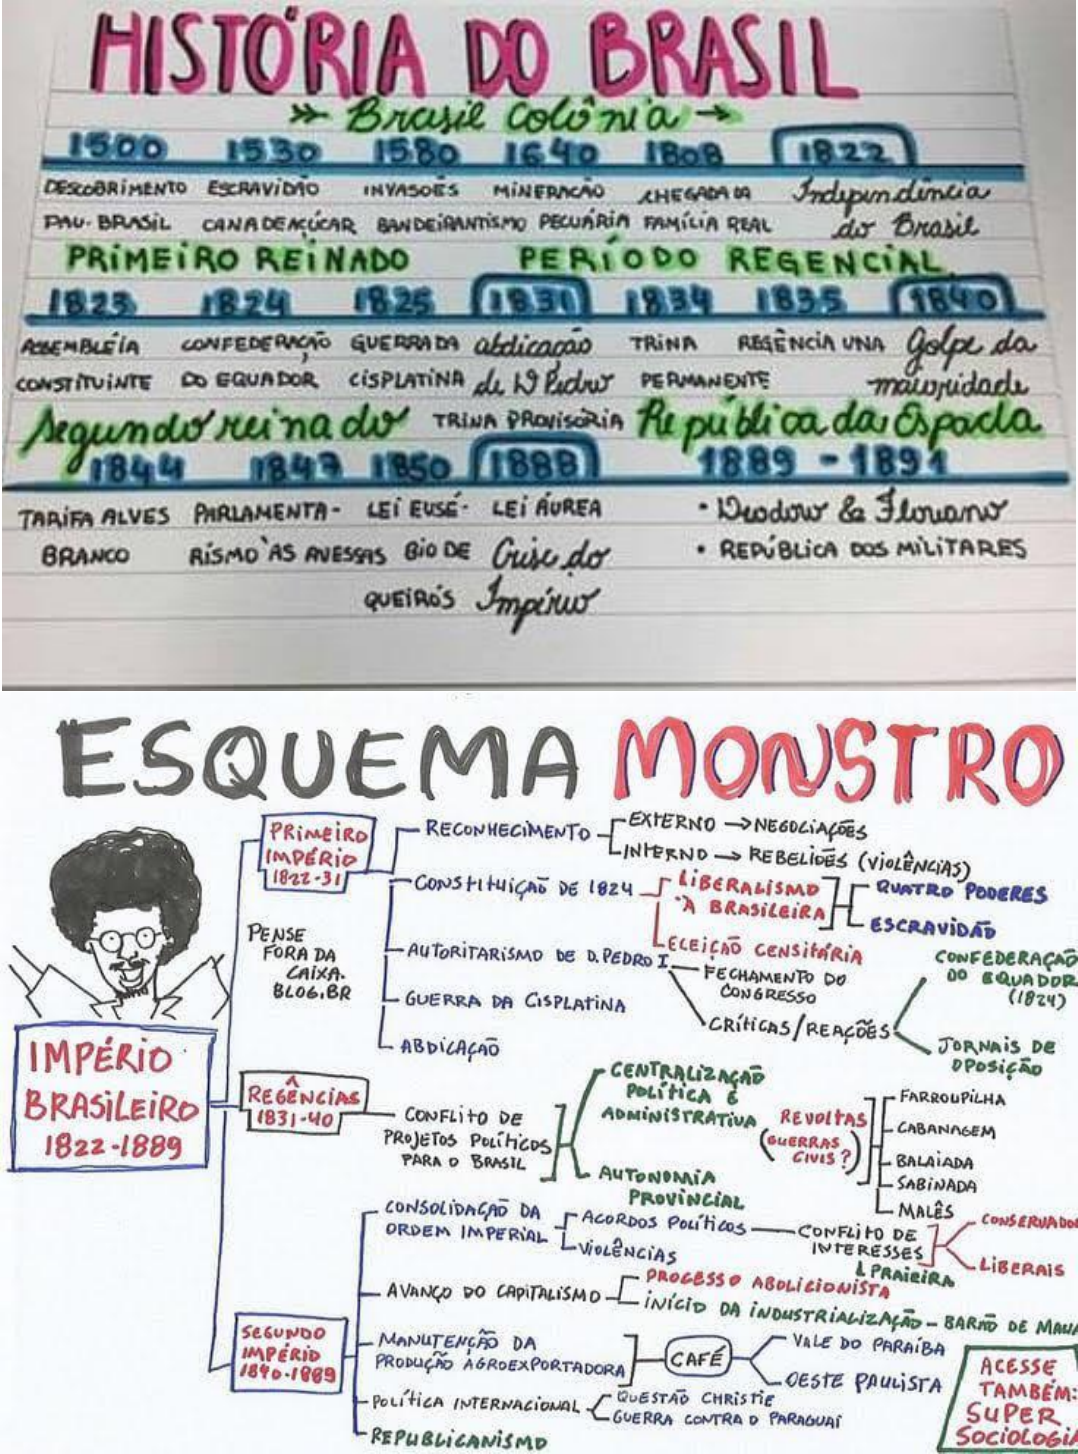 HISTÓRIA DO BRASIL
Brasil Colônia
1500 1530 1580 1640 1808 1822
DESCOBRIMENTO ESCRAVIDÃO INVASOÉS MINERAÇÃO CHEGADA DA Independência
PAU-BRASIL CANA DE AÇÚCAR BANDEIRANTISMO PECUÁRIA FAMÍLIA REAL do Brasil
PRIMEIRO REINADO PERÍODO REGENCIAL
1823 1824 1825 1831 1834 1835 1840
ASSEMBLÉIA CONFEDERAÇÃO GUERRA DA abdicação TRINA REGÊNCIA UNA Golpe da
CONSTITUINTE DO EQUADOR CISPLATINA de D Pedro PERMANENTE maioridade
Segundo reinado TRINA PROVISÓRIA República da Espada
1844 1847 1850 1888 1889 - 1891
TARIFA ALVES PARLAMENTA- LEI EUSÉ- LEI ÁUREA • Deodoro & Floriano
BRANCO RISMO ÀS AVESSAS BIO DE Crise do • REPÚBLICA DOS MILITARES
QUEIRÓS Império
ESQUEMA MONSTRO
PRIMEIRO
IMPÉRIO
1822-31
RECONHECIMENTO
EXTERNO → NEGOCIAÇÕES
INTERNO → REBELIÕES (VIOLÊNCIAS)
CONSTITUIÇÃO DE 1824
LIBERALISMO
À BRASILEIRA
QUATRO PODERES
ESCRAVIDÃO
ELEIÇÃO CENSITÁRIA
PENSE
FORA DA
CAIXA.
BLOG.BR
AUTORITARISMO DE D. PEDRO I
FECHAMENTO DO
CONGRESSO
CRÍTICAS/REAÇÕES
CONFEDERAÇÃO
DO EQUADOR
(1824)
JORNAIS DE
OPOSIÇÃO
GUERRA DA CISPLATINA
ABDICAÇÃO
IMPÉRIO
BRASILEIRO
1822-1889
REGÊNCIAS
1831-40
CONFLITO DE
PROJETOS POLÍTICOS
PARA O BRASIL
CENTRALIZAÇÃO
POLÍTICA E
ADMINISTRATIVA
AUTONOMIA
PROVINCIAL
REVOLTAS
(GUERRAS
CIVIS?)
FARROUPILHA
CABANAGEM
BALAIADA
SABINADA
MALÊS
SEGUNDO
IMPÉRIO
1840-1889
CONSOLIDAÇÃO DA
ORDEM IMPERIAL
ACORDOS POLÍTICOS
VIOLÊNCIAS
CONFLITO DE
INTERESSES
PRAIEIRA
CONSERVADOR
LIBERAIS
AVANÇO DO CAPITALISMO
PROCESSO ABOLICIONISTA
INÍCIO DA INDUSTRIALIZAÇÃO - BARÃO DE MAUÁ
MANUTENÇÃO DA
PRODUÇÃO AGROEXPORTADORA
CAFÉ
VALE DO PARAÍBA
OESTE PAULISTA
POLÍTICA INTERNACIONAL
QUESTÃO CHRISTIE
GUERRA CONTRA O PARAGUAI
REPUBLICANISMO
ACESSE
TAMBÉM:
SUPER
SOCIOLOGIA